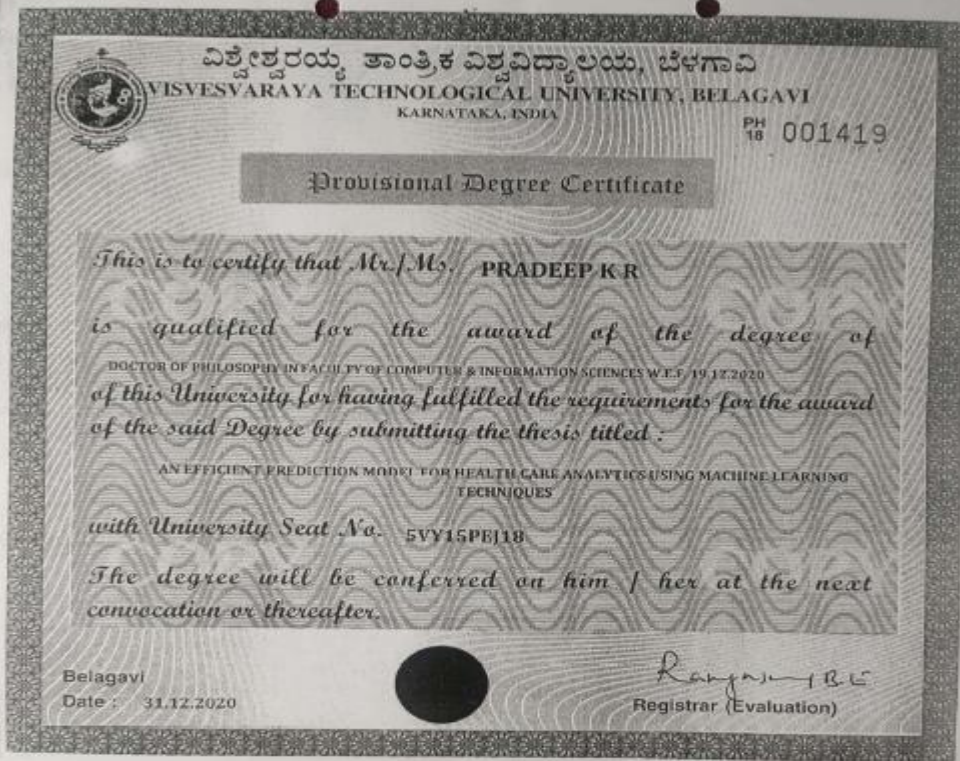 ವಿಶ್ವೇಶ್ವರಯ್ಯ ತಾಂತ್ರಿಕ ವಿಶ್ವವಿದ್ಯಾಲಯ, ಬೆಳಗಾವಿ
VISVESVARAYA TECHNOLOGICAL UNIVERSITY, BELAGAVI
KARNATAKA, INDIA
PH 18 001419
Provisional Degree Certificate
This is to certify that Mr./Ms. PRADEEP K R
is qualified for the award of the degree of
DOCTOR OF PHILOSOPHY IN FACULTY OF COMPUTER & INFORMATION SCIENCES W.E.F. 19.12.2020
of this University for having fulfilled the requirements for the award
of the said Degree by submitting the thesis titled :
AN EFFICIENT PREDICTION MODEL FOR HEALTH CARE ANALYTICS USING MACHINE LEARNING
TECHNIQUES
with University Seat No. 5VY15PEJ18
The degree will be conferred on him / her at the next
convocation or thereafter.
Belagavi
Date : 31.12.2020
Registrar (Evaluation)